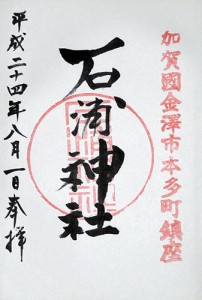 加賀國金澤市本多町鎮座
石浦神社
平成二十四年八月一日奉拝